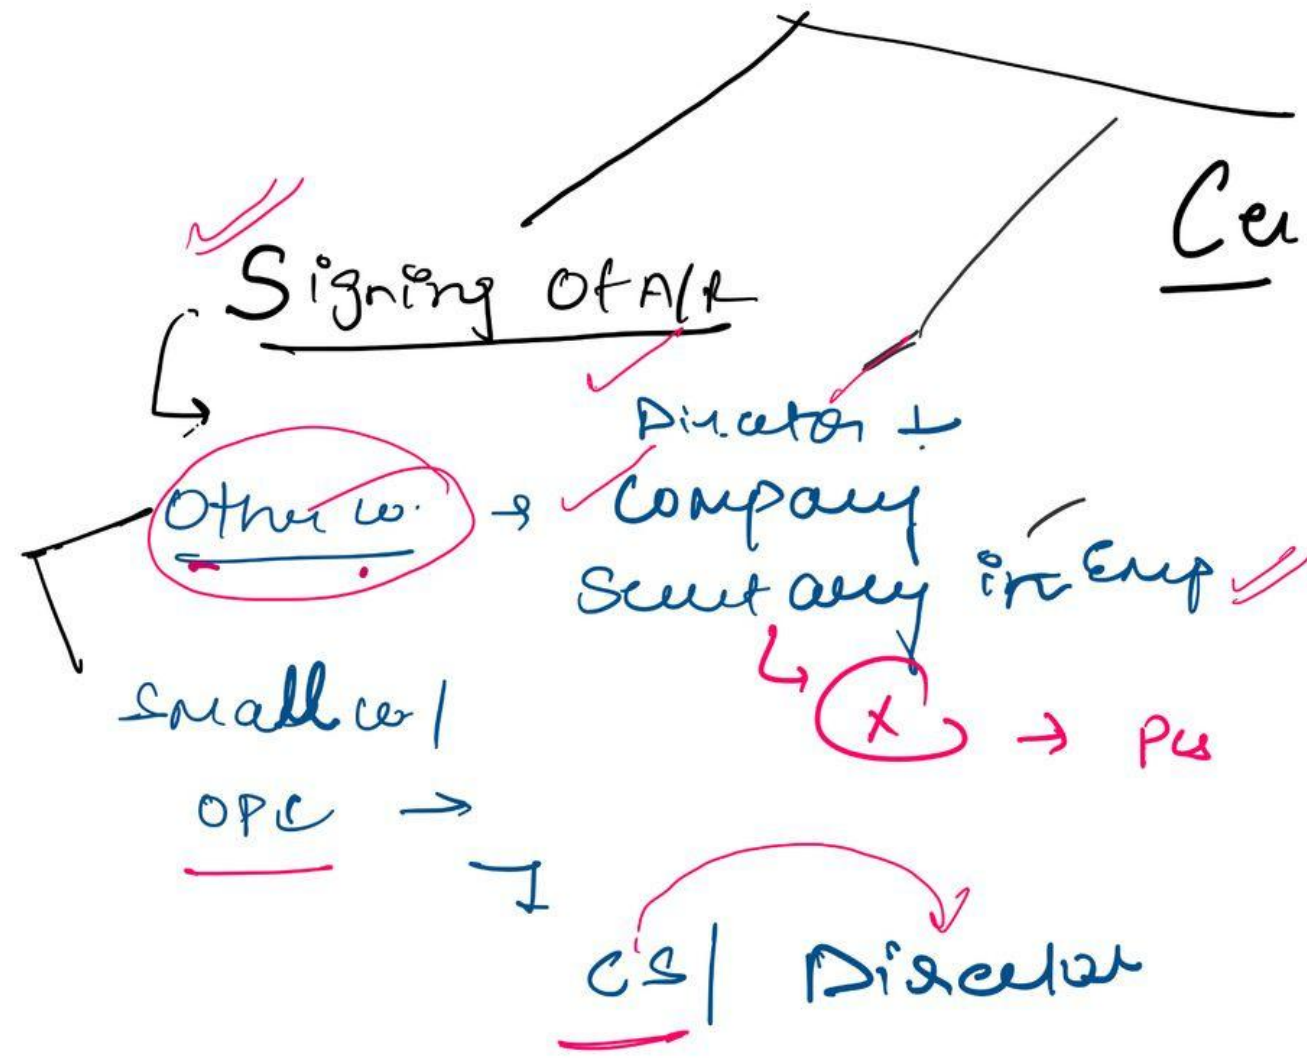 Ce
Signing Of A/R
Director +
Other co. → Company
Secretary in Emp
X → PCS
Small co /
OPC →
CS / Director